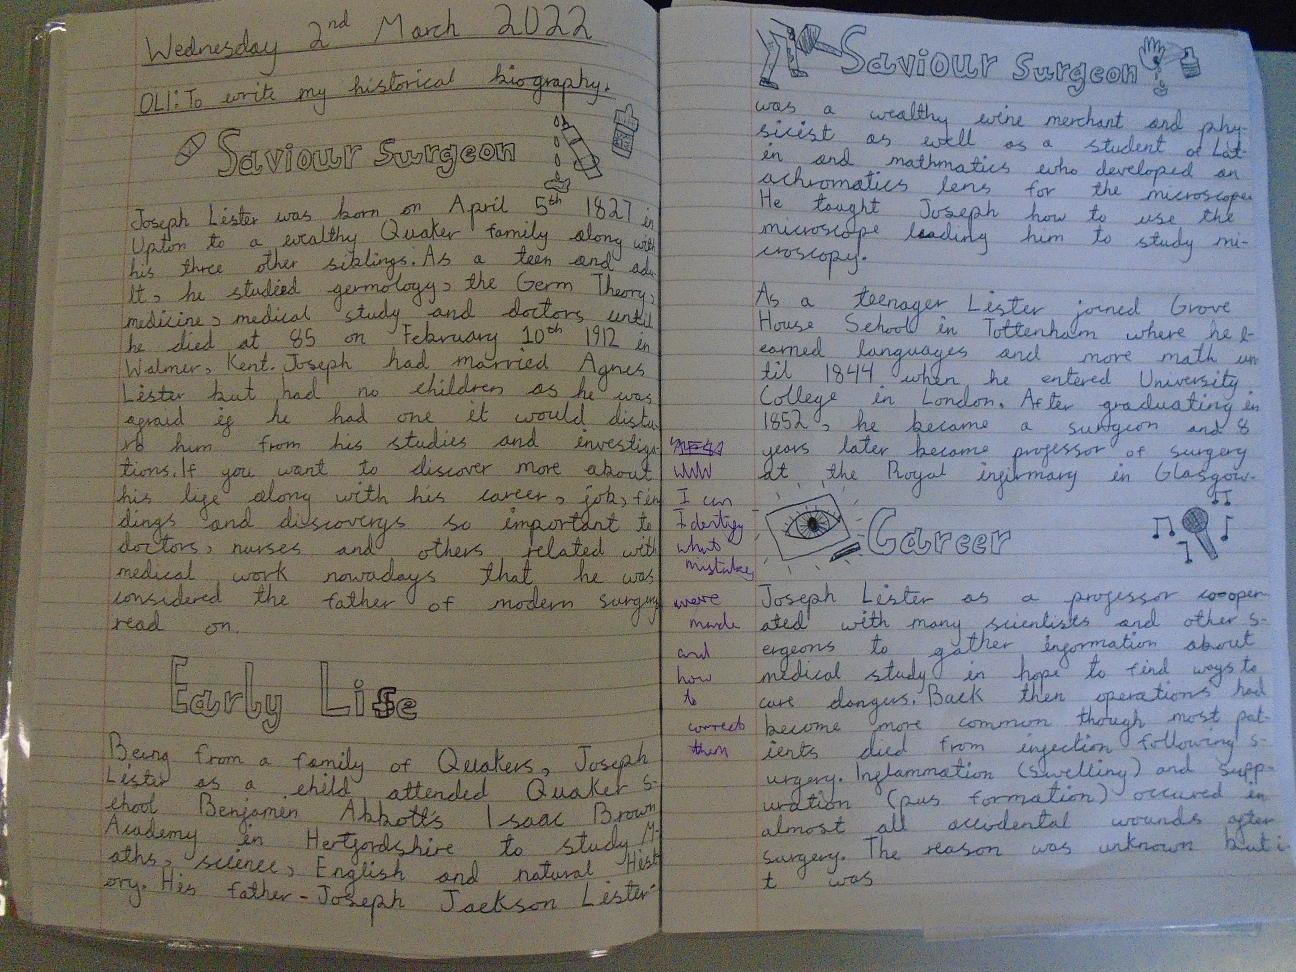 Wednesday 2nd March 2022
OLI: To write my historical biography.
Saviour Surgeon
Joseph Lister was born on April 5th 1827 in
Upton to a wealthy Quaker family along with
his three other siblings. As a teen and adu
lt, he studied germology, the Germ Theory,
medicine, medical study and doctors until
he died at 85 on February 10th 1912 in
Walmer, Kent. Joseph had married Agnes
Lister but had no children as he was
afraid if he had one it would distu
rb him from his studies and investiga
tions. If you want to discover more about
his life along with his career, job, fin
dings and discoverys so important to
doctors, nurses and others related with
medical work nowadays that he was
considered the father of modern surgery
read on.
Early Life
Being from a family of Quakers, Joseph
Lister as a child attended Quaker s-
chool Benjamin Abbotts Isaac Brown
Academy in Hertfordshire to study M-
aths, science, English and natural Hist
ory. His father - Joseph Jackson Lister -
Saviour Surgeon
was a wealthy wine merchant and phy-
sicist as well as a student of Lat-
in and mathmatics who developed an
achromatics lens for the microscope.
He taught Joseph how to use the
microscope leading him to study mi-
croscopy.
As a teenager Lister joined Grove
House School in Tottenham where he l-
earned languages and more math un
til 1844 when he entered University
College in London. After graduating in
1852, he became a surgeon and 8
years later became professor of surgery
at the Royal infirmary in Glasgow.
Career
Joseph Lister as a professor co-oper-
ated with many scientists and other s-
ergeons to gather information about
medical study in hope to find ways to
cure dangers. Back then operations had
become more common though most pat-
ients died from infection following s-
urgery. Inflammation (swelling) and supp-
uration (pus formation) occured in
almost all accidental wounds after
surgery. The reason was unknown but i-
t was
WWW
I can
Identify
what
mistakes
were
made
and
how
to
correct
them